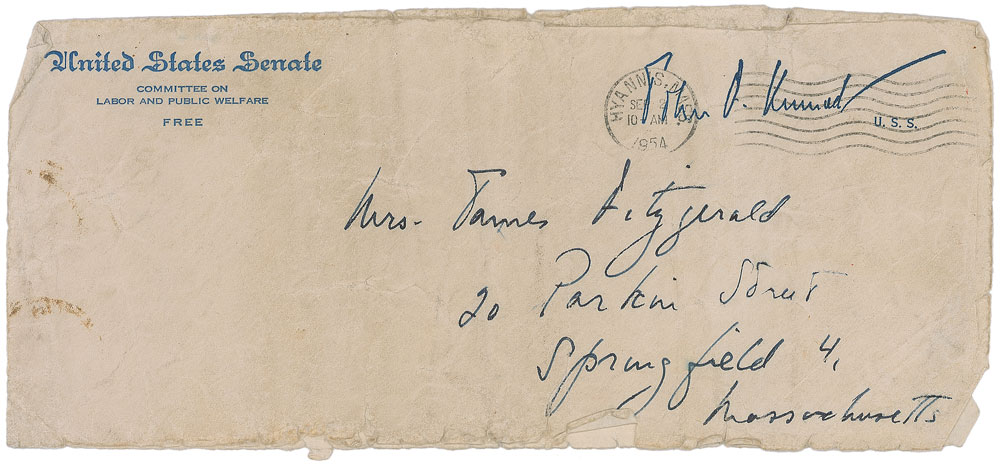 United States Senate
COMMITTEE ON
LABOR AND PUBLIC WELFARE
FREE
HYANNIS, MASS
SEP 2
10 AM
1954
John F. Kennedy
U. S. S.
Mrs. James Fitzgerald
20 Parkin Street
Springfield 4,
Massachusetts